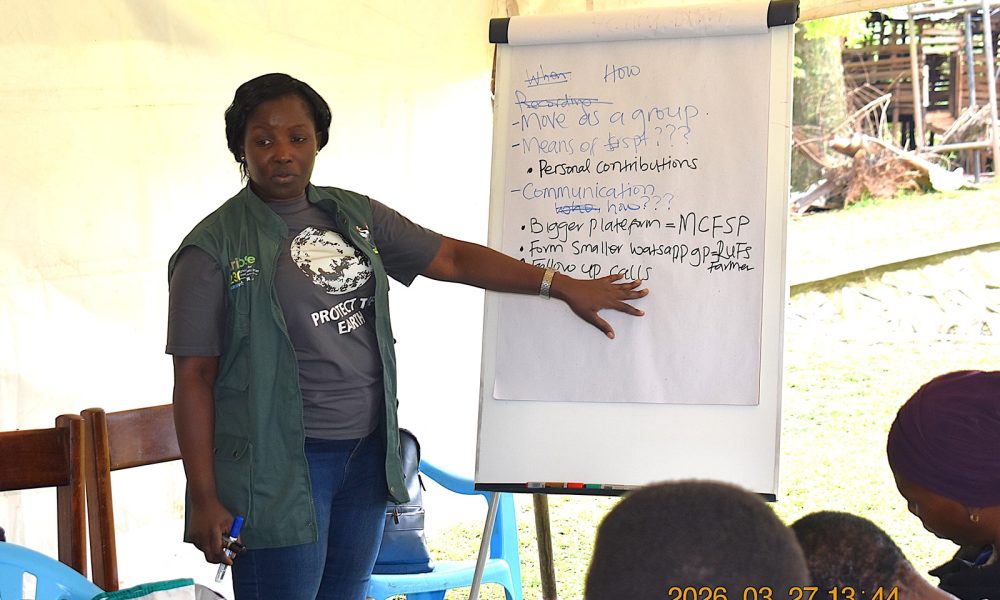 When How
Recording
- Move as a group.
- Means of tspt???
• Personal contributions
- Communication
how???
• Bigger plateform = MCFSP
• Form Smaller watsapp gp=RUFs
Farmer
Follow up calls
PROTECT T
EARTH
2026 03 27 13:44